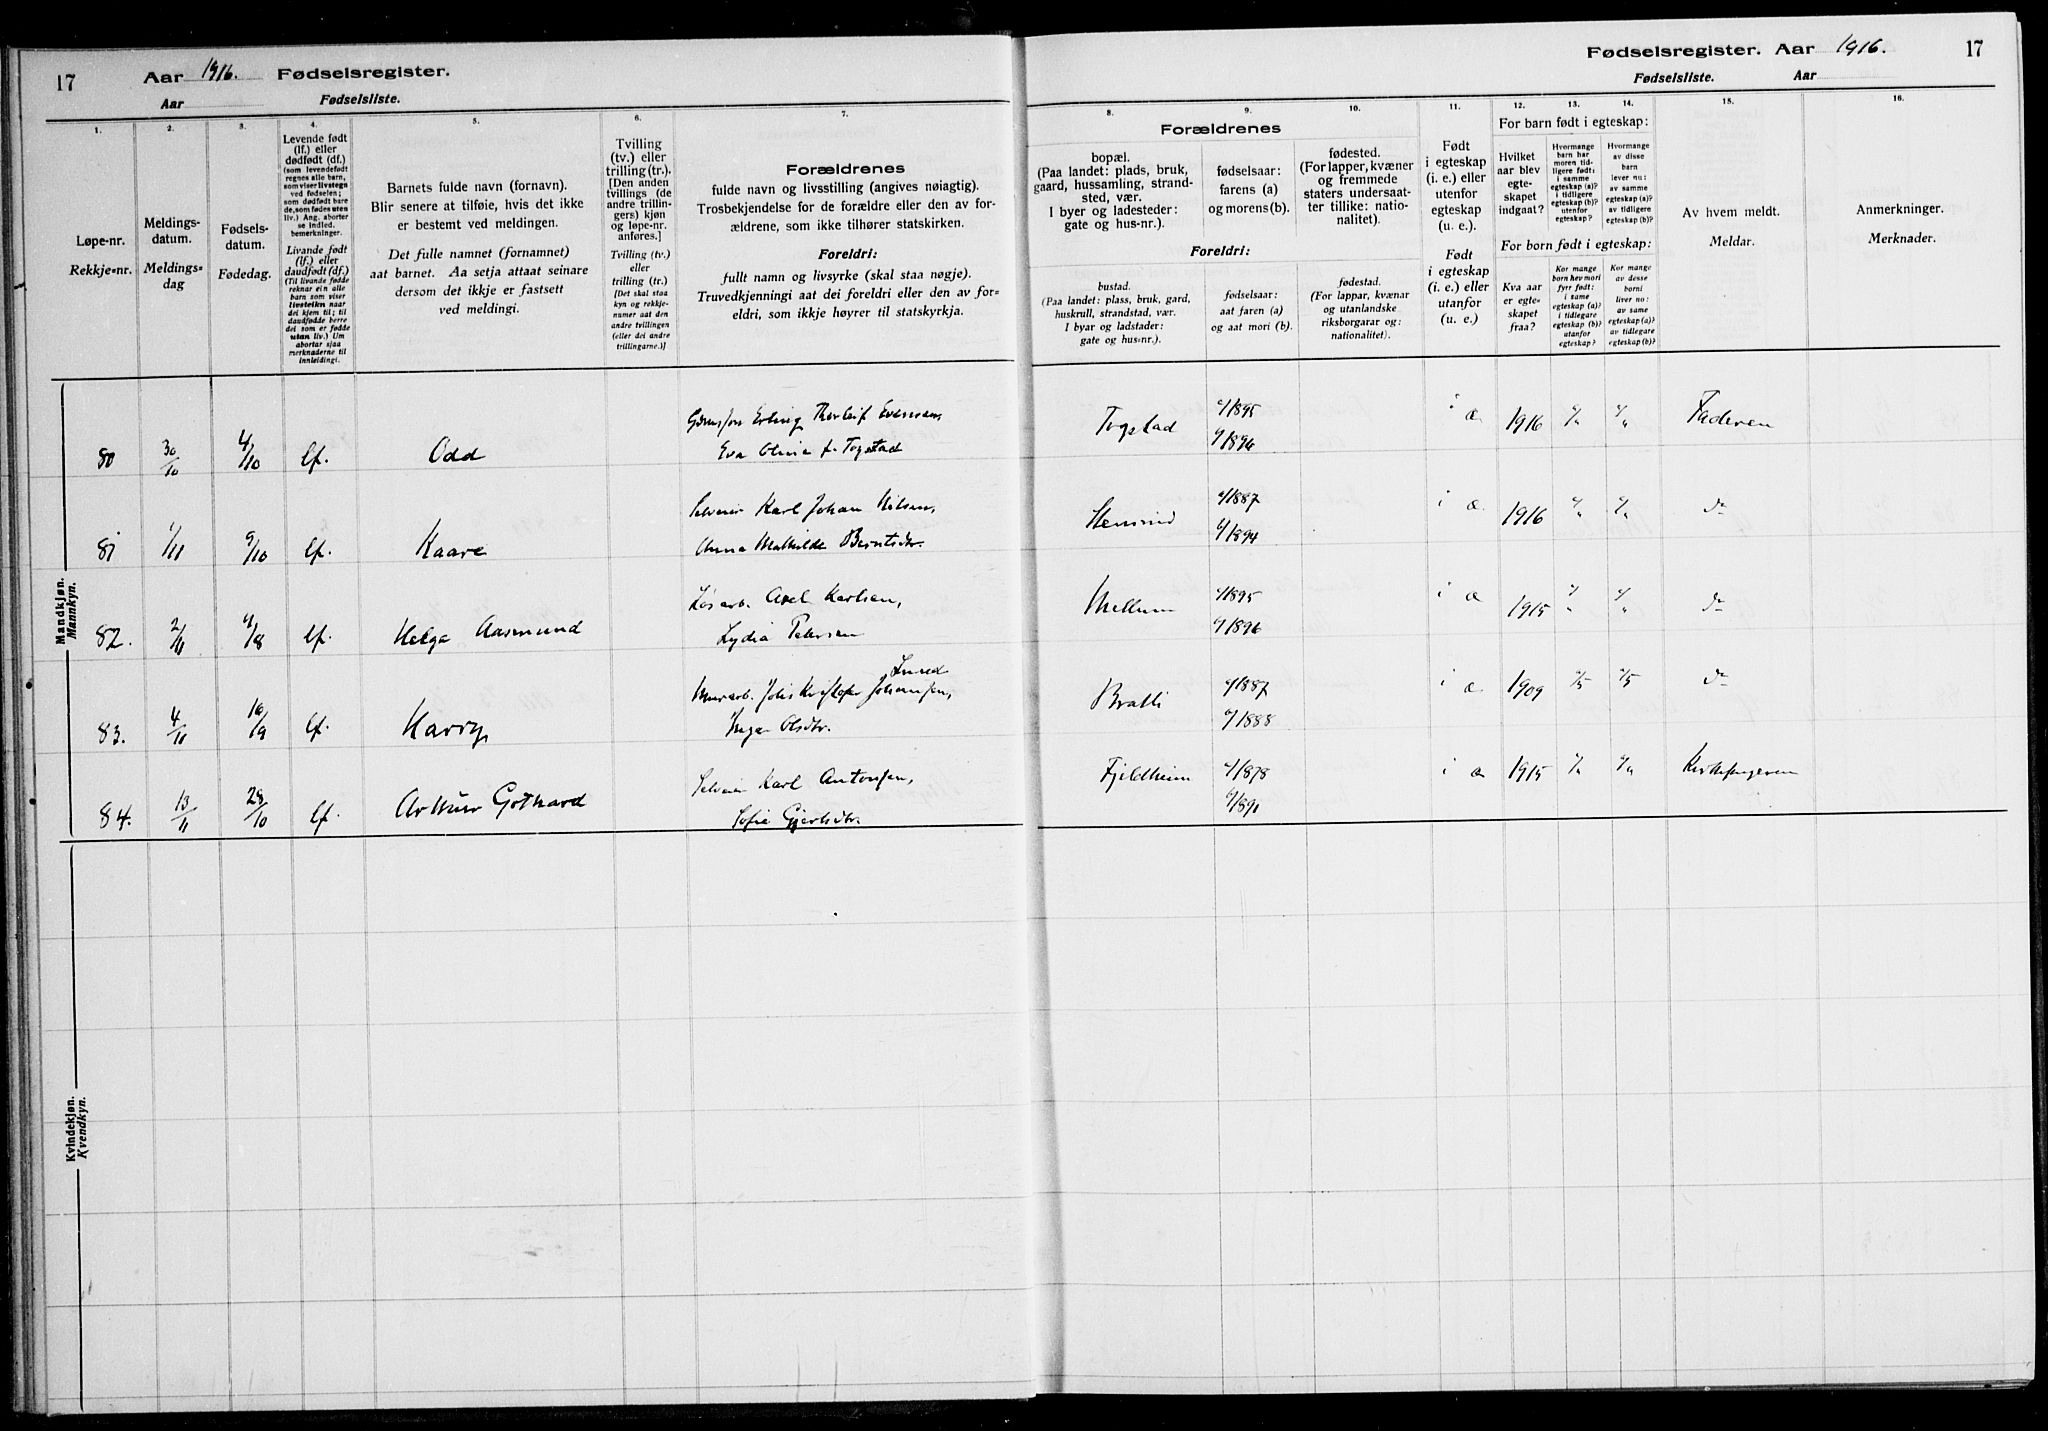 17
Aar 1916. Fødselsregister.
Aar Fødselsliste.
1.
2.
3.
4.
5.
6.
7.
Løpe-nr.
Rekkje-nr.
Meldings-
datum.
Meldings-
dag
Fødsels-
datum.
Fødedag.
Levende født
(lf.) eller
dødfødt (df.)
(som levendefødt
regnes alle barn,
som viser livstegn
ved fødselen;
som dødfødt bare
de, som fødes uten
liv.) Ang. aborter
se indled.
bemerkninger.
Livande født
(lf.) eller
daudfødt (df.)
(Til livande fødde
reknar ein alle
barn som viser
livsteikn naar
dei kjem til; til
daudfødde berre
dei som er fødde
utan liv.) Um
abortar sjaa
merknaderne til
innleidingi.
Barnets fulde navn (fornavn).
Blir senere at tilføie, hvis det ikke
er bestemt ved meldingen.
Det fulle namnet (fornamnet)
aat barnet. Aa setja attaat seinare
dersom det ikkje er fastsett
ved meldingi.
Tvilling
(tv.) eller
trilling (tr.).
[Den anden
tvillings (de
andre trillin-
gers) kjøn
og løpe-nr.
anføres.]
Tvilling (tv.)
eller
trilling (tr.).
[Det skal staa
kyn og rekkje-
numer aat den
andre tvillingen
(eller dei andre
trillingarne.)]
Forældrenes
fulde navn og livsstilling (angives nøiagtig).
Trosbekjendelse for de forældre eller den av for-
ældrene, som ikke tilhører statskirken.
Foreldri:
fullt namn og livsyrke (skal staa nøgje).
Truvedkjenningi aat dei foreldri eller den av for-
eldri, som ikkje høyrer til statskyrkja.
Mandkjøn.
Mannkyn.
80 30/10 4/10 lf. Odd
Erling Thorleif Evensen,
Eva Olivia f. Togstad
81 1/11 9/10 lf. Kaare
Karl Johan Nilsen,
Anna Mathilde Berntsdtr.
82. 2/11 4/8 lf. Helge Aasmund
Løsarb. Axel Karlsen,
Lydia Petersen
83. 4/11 16/9 lf. Harry
Lund
Murarb. Johansen,
Inga Olsdtr.
84. 13/11 28/10 lf. Arthur Gothard
Karl Antonsen,
Sofie Gjertsdtr.
Kvindekjøn.
Kvendkyn.
Fødselsregister. Aar 1916. 17
Fødselsliste. Aar
8.
9.
10.
11.
12.
13.
14.
15.
16.
Forældrenes
bopæl.
(Paa landet: plads, bruk,
gaard, hussamling, strand-
sted, vær.
I byer og ladesteder:
gate og hus-nr.).
fødselsaar:
farens (a)
og morens (b).
fødested.
(For lapper, kvæner
og fremmede
staters undersaat-
ter tillike: natio-
nalitet).
Foreldri:
bustad.
(Paa landet: plass, bruk, gard,
huskrull, strandstad, vær.
I byar og ladstader:
gate og hus-nr.).
fødselsaar:
aat faren (a)
og aat mori (b).
fødestad.
(For lappar, kvænar
og utanlandske
riksborgarar og:
nationalitet).
Født
i egteskap
(i. e.) eller
utenfor
egteskap
(u. e.).
Født
i egteskap
(i. e.) eller
utanfor
(u. e.).
For barn født i egteskap:
Hvilket
aar blev
egte-
skapet
indgaat?
Hvormange
barn har
moren tid-
ligere født:
i samme
egteskap (a)?
i tidligere
egteskap (b)?
utenfor
egteskap?
Hvormange
av disse
barn
lever nu:
av samme
egteskap (a)?
av tidligere
egteskap (b)?
For born født i egteskap:
Kva aar
er egte-
skapet
fraa?
Kor mange
born hev mori
fyrr født:
i same
egteskap (a)?
i tidlegare
egteskap (b)?
utanfor
egteskap?
Kor mange
av desse
borni
liver no:
av same
egteskap (a)?
av tidlegare
egteskap (b)?
Av hvem meldt.
Meldar.
Anmerkninger.
Merknader.
Togstad a/1895 i æ 1916 Faderen
b/1896
a/1887 i æ 1916 do
b/1894
Mellum a/1895 i æ 1915 do
b/1896
Bratli a/1887 i æ 1909 a/5 a/5 do
b/1888
Fjeldheim a/1878 i æ 1915 Kirkesangeren
b/1891